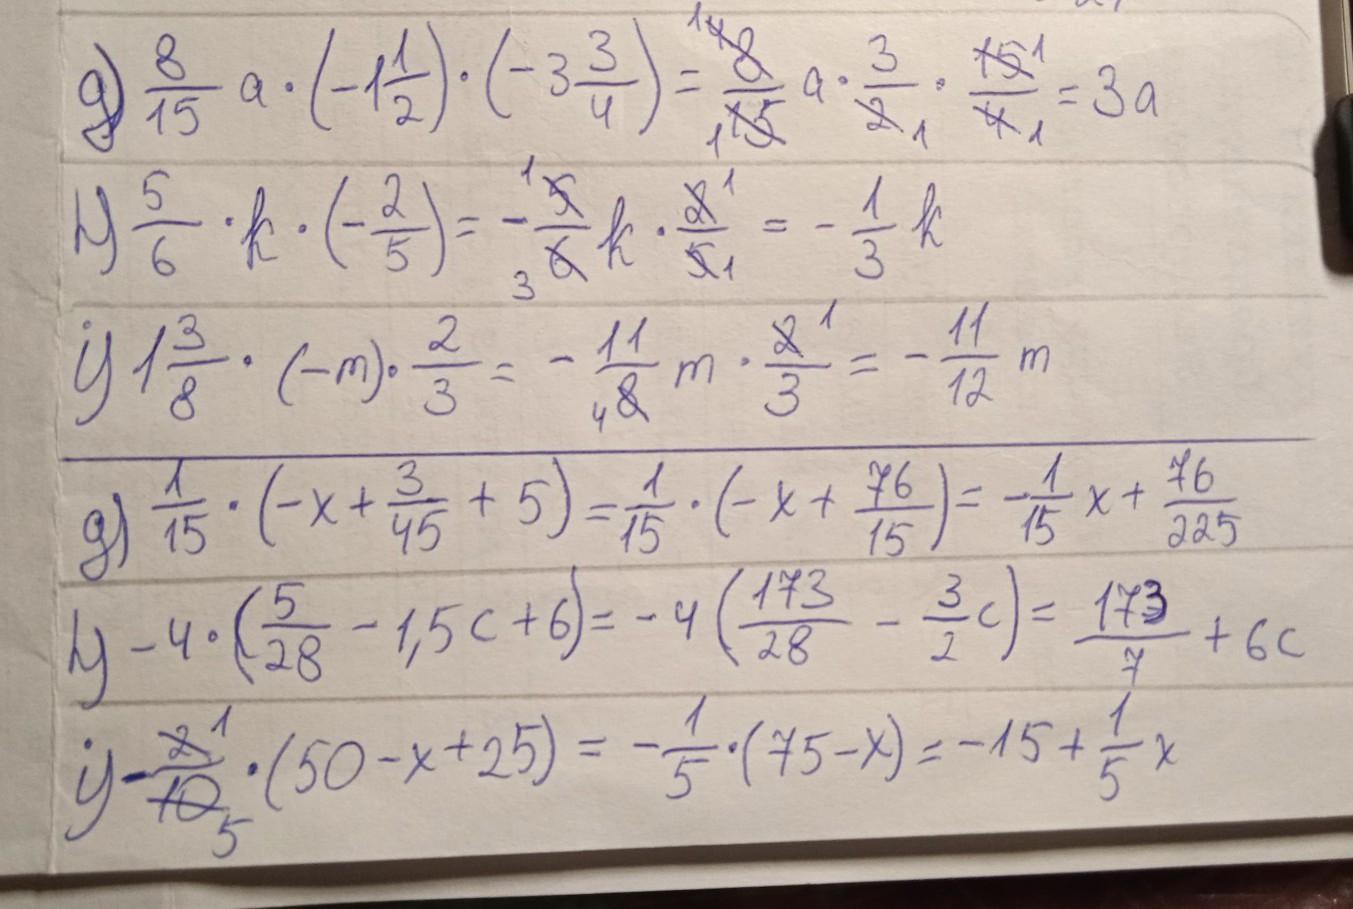 g) 8/15 a · (-1 1/2) · (-3 3/4) = 8/15 a · 3/2 · 15/4 = 3a
h) 5/6 · k · (-2/5) = -5/6 k · 2/5 = -1/3 k
i) 1 3/8 · (-m) · 2/3 = -11/8 m · 2/3 = -11/12 m
g) 1/15 · (-x + 3/45 + 5) = 1/15 · (-x + 76/15) = -1/15 x + 76/225
h) -4 · (5/28 - 1,5c + 6) = -4 (173/28 - 3/2 c) = 173/7 + 6c
i) -2/10 · (50 - x + 25) = -1/5 · (75 - x) = -15 + 1/5 x